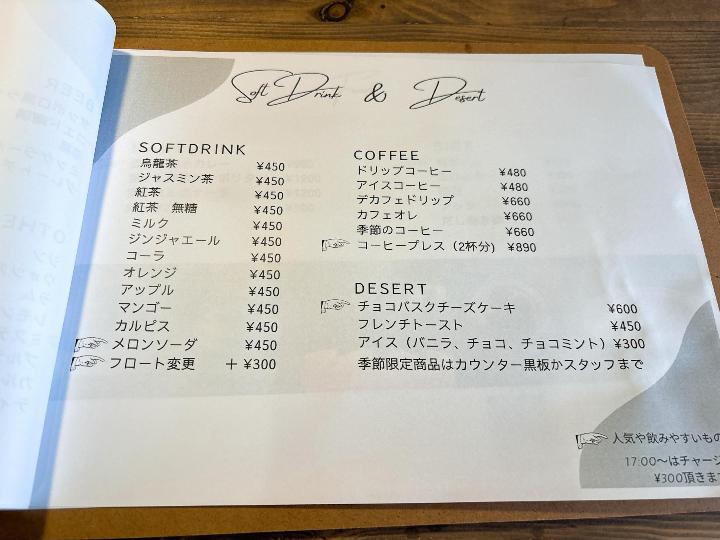 Soft Drink & Desert
SOFTDRINK
烏龍茶 ¥450
ジャスミン茶 ¥450
紅茶 ¥450
紅茶 無糖 ¥450
ミルク ¥450
ジンジャエール ¥450
コーラ ¥450
オレンジ ¥450
アップル ¥450
マンゴー ¥450
カルピス ¥450
メロンソーダ ¥450
フロート変更 + ¥300
COFFEE
ドリップコーヒー ¥480
アイスコーヒー ¥480
デカフェドリップ ¥660
カフェオレ ¥660
季節のコーヒー ¥660
コーヒープレス(2杯分) ¥890
DESERT
チョコバスクチーズケーキ ¥600
フレンチトースト ¥450
アイス(バニラ、チョコ、チョコミント) ¥300
季節限定商品はカウンター黒板かスタッフまで
人気や飲みやすいもの
17:00〜はチャージ
¥300頂きま